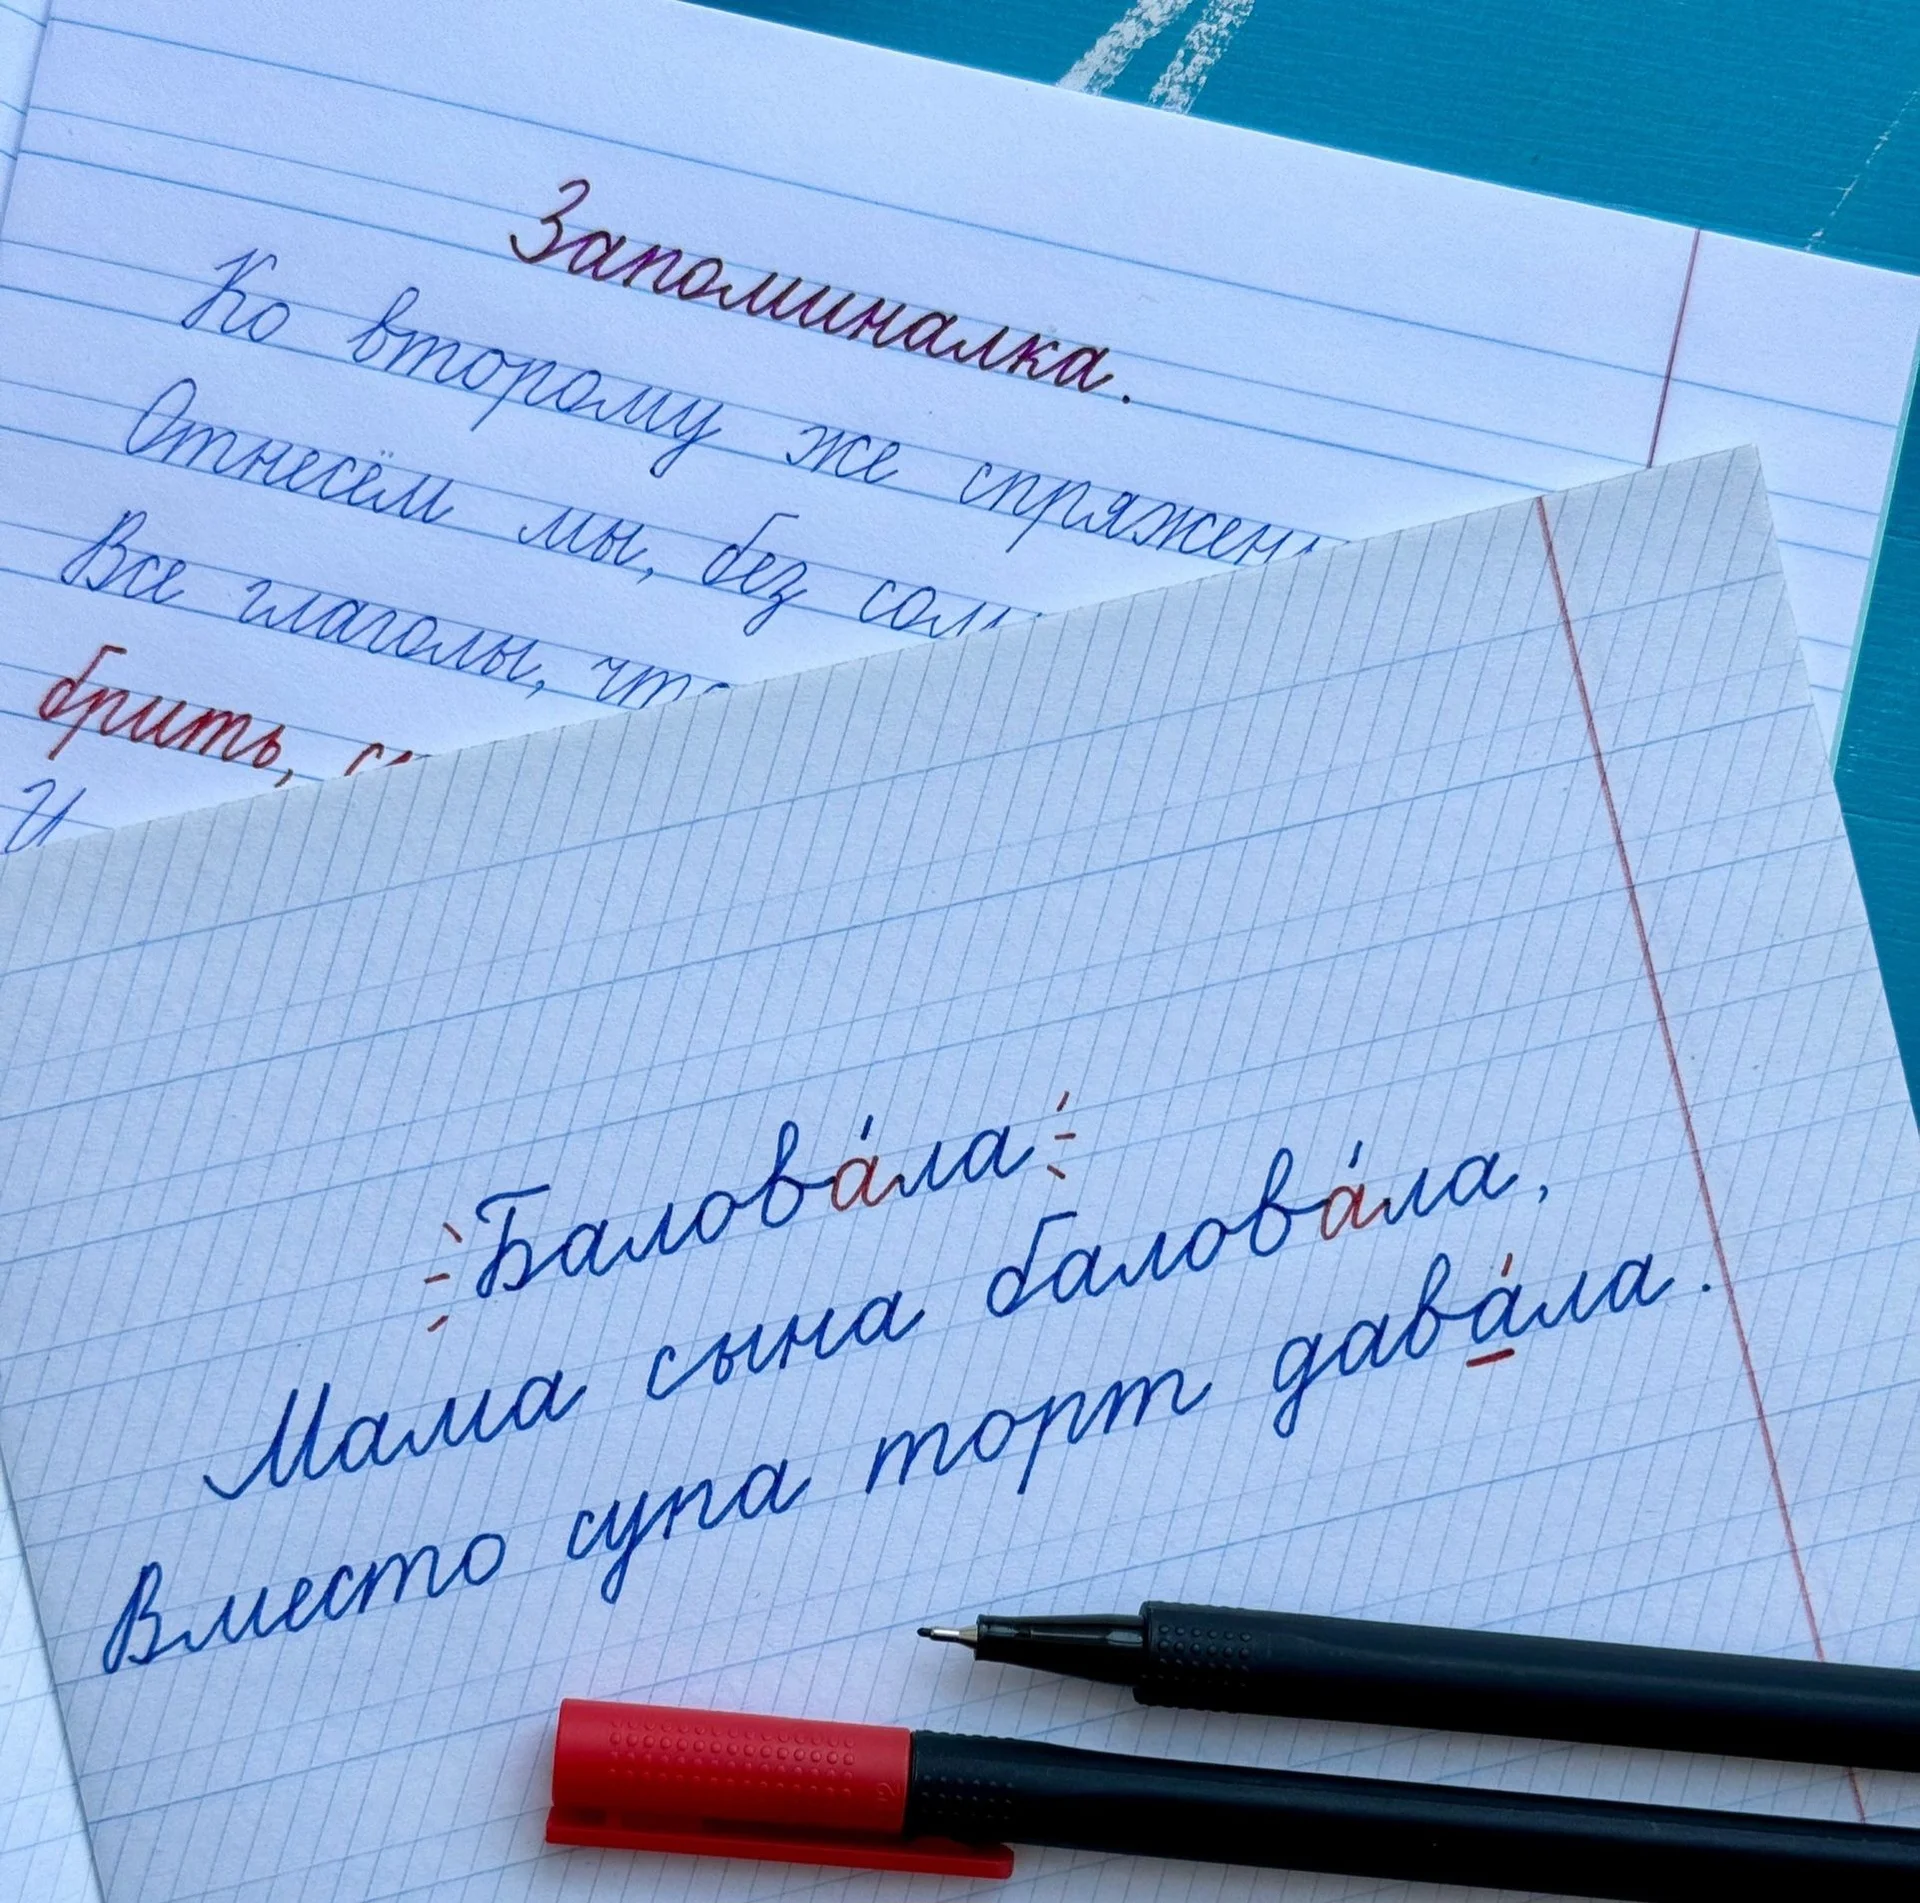 Запоминалка.
Ко второму же
Отнесём мы, без
Все глаголы,
брить,
И
Балова́ла
Мама сына балова́ла,
Вместо супа торт дава́ла.